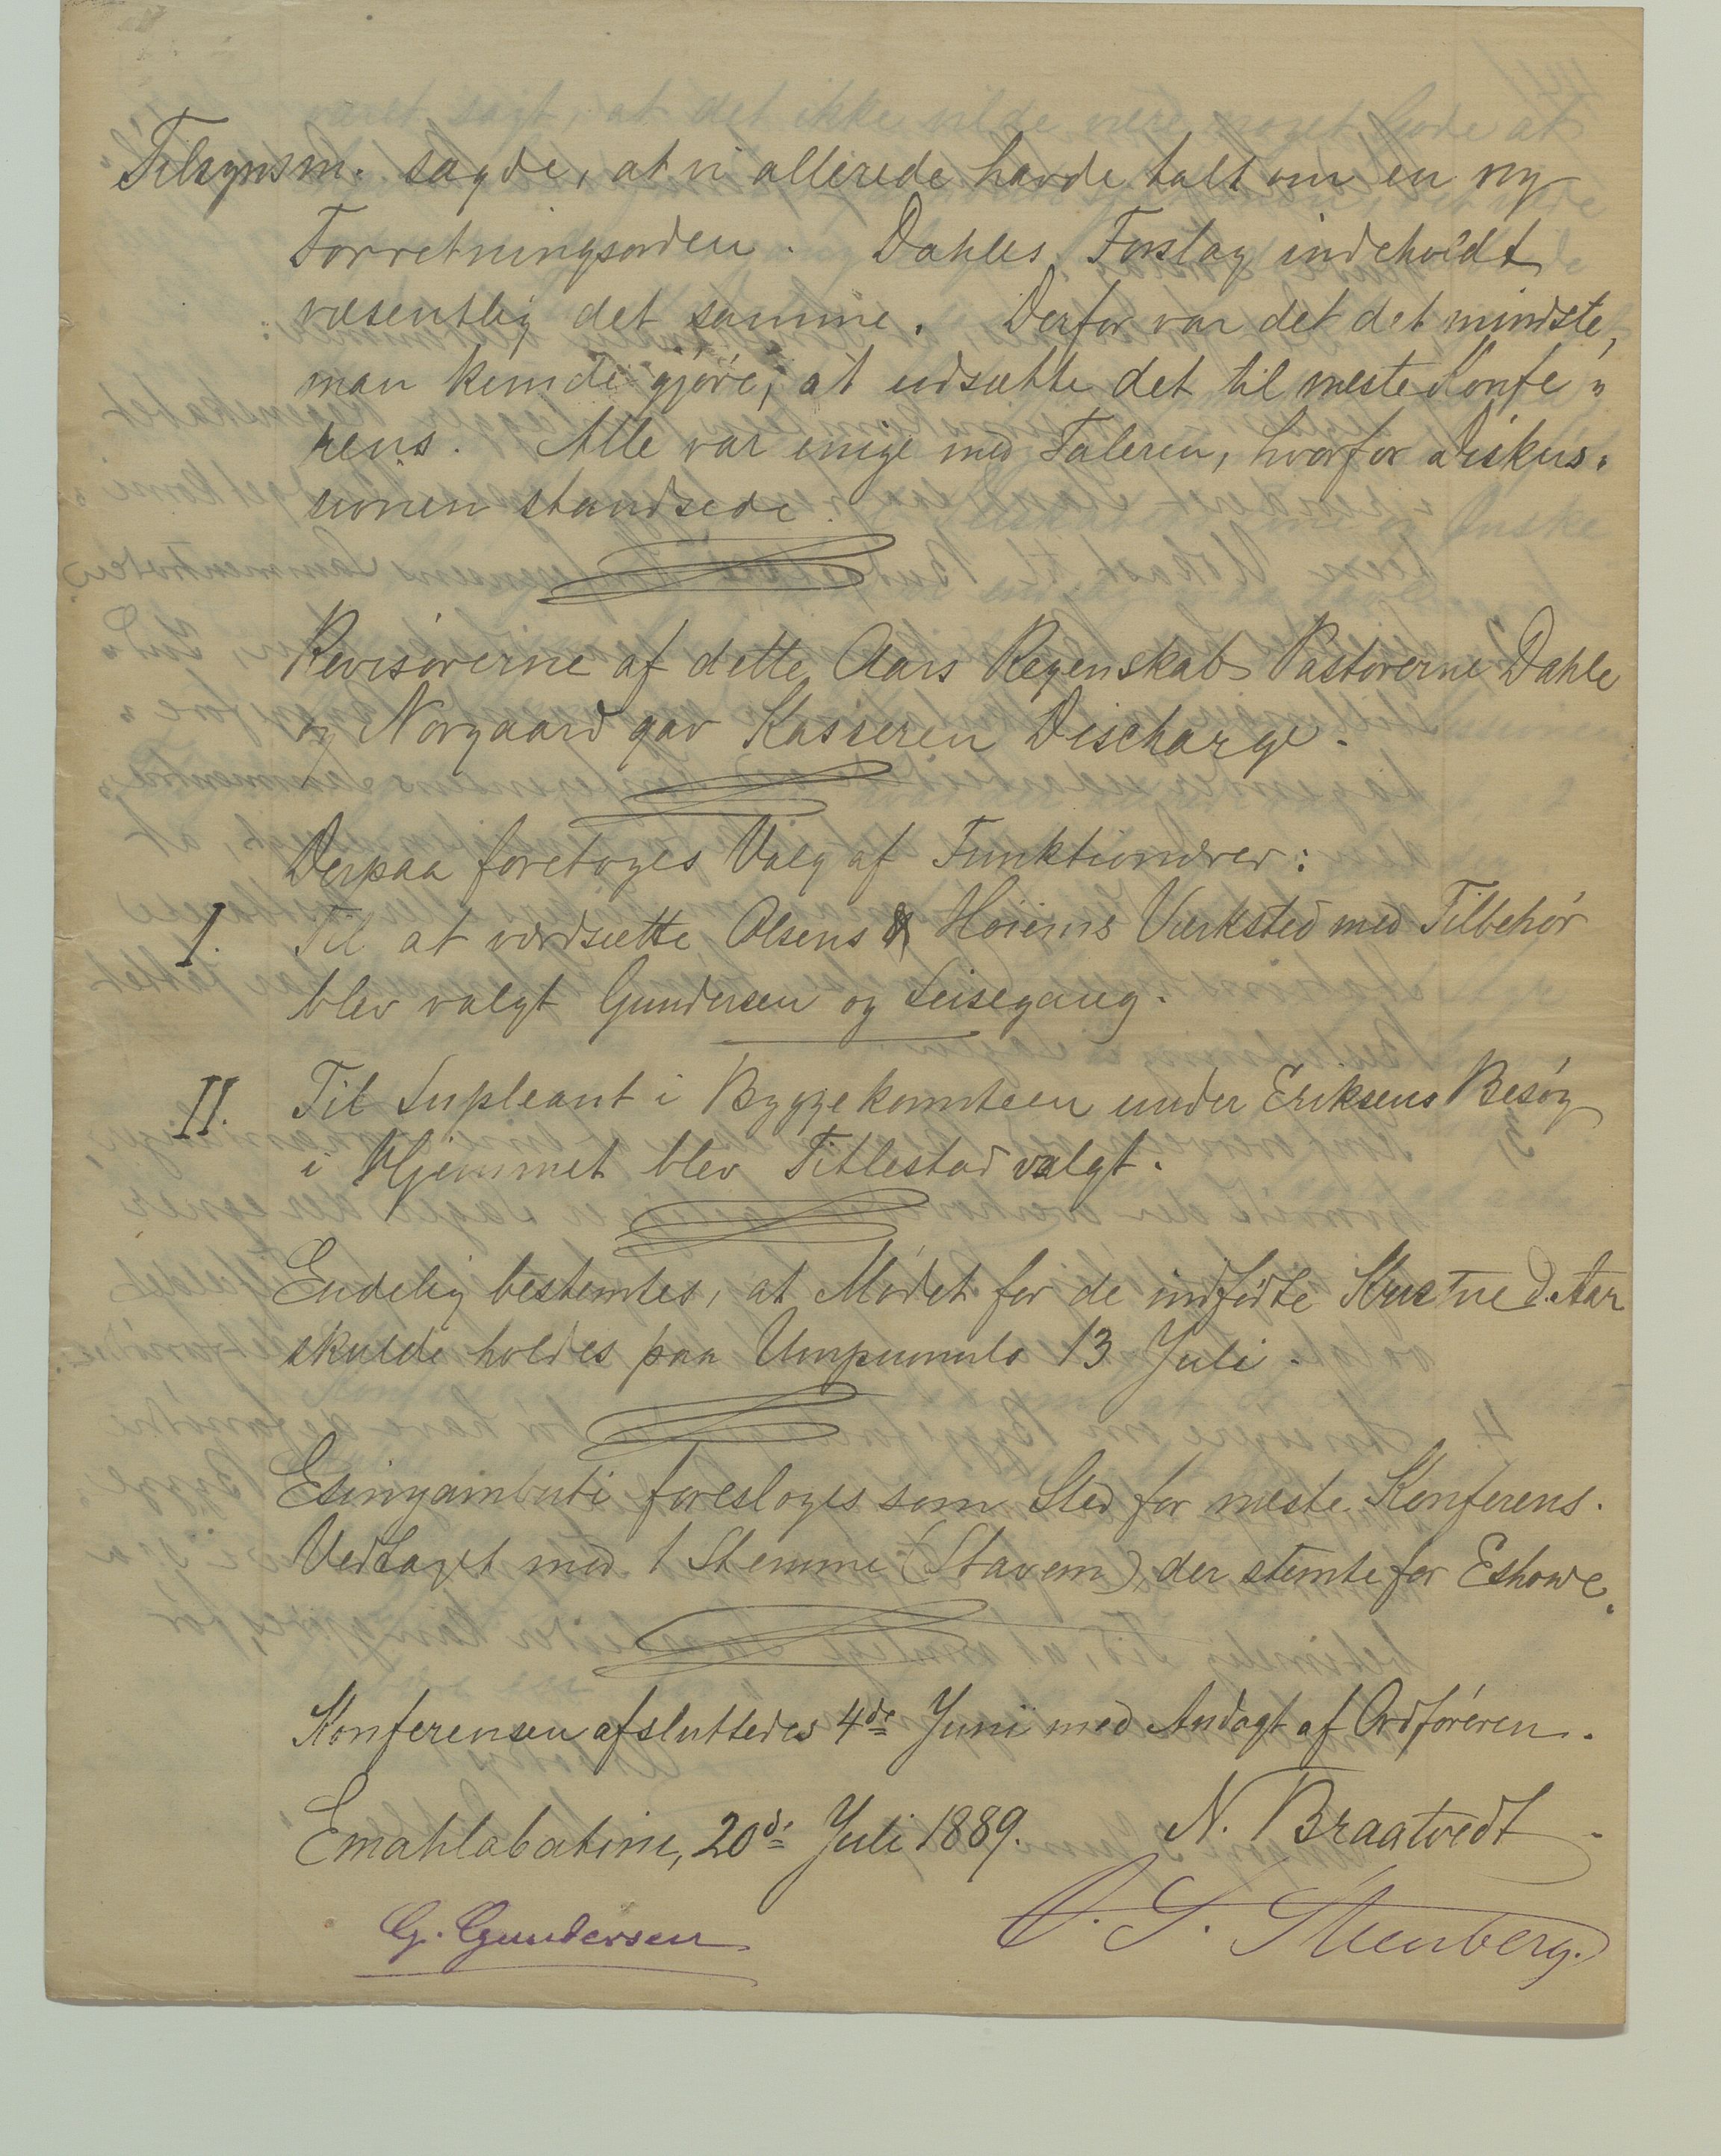 Tilsynsm. sagde, at vi allerede havde talt om en ny
Forretningsorden. Dahles Forslag indeholdt
væsentlig det samme. Derfor var det det mindste,
man kunde gjøre, at udsætte det til næste Konfe„
rens. Alle var enige med Taleren, hvorfor Diskus„
sionen standsede.
Revisorerne af dette Aars Regenskab Pastorerne Dahle
og Norgaard gav Kasseren Discharge.
Derpaa foretoges Valg af Funktionærer:
I. Til at værdsætte Olsens & Hoiems Værksted med Tilbehør
blev valgt Gundersen og Leisegang.
II. Til Supleant i Byggekomiteen under Eriksens Besøg
i Hjemmet blev Titlestad valgt.
Endelig bestemtes, at Mødet for de indfødte Kristne d. Aar
skulde holdes paa Umpumulo 13 Juli.
Esinyambuti foresloges som Sted for næste Konferens.
Vedtaget mod 1 Stemme (Stavem), der stemte for Eshowe.
Konferensen afsluttedes 4de Juni med Andagt af Ordføreren.
Emahlabatini, 20de Juli 1889. N. Braatvedt
G. Gundersen O. S. Steenberg.